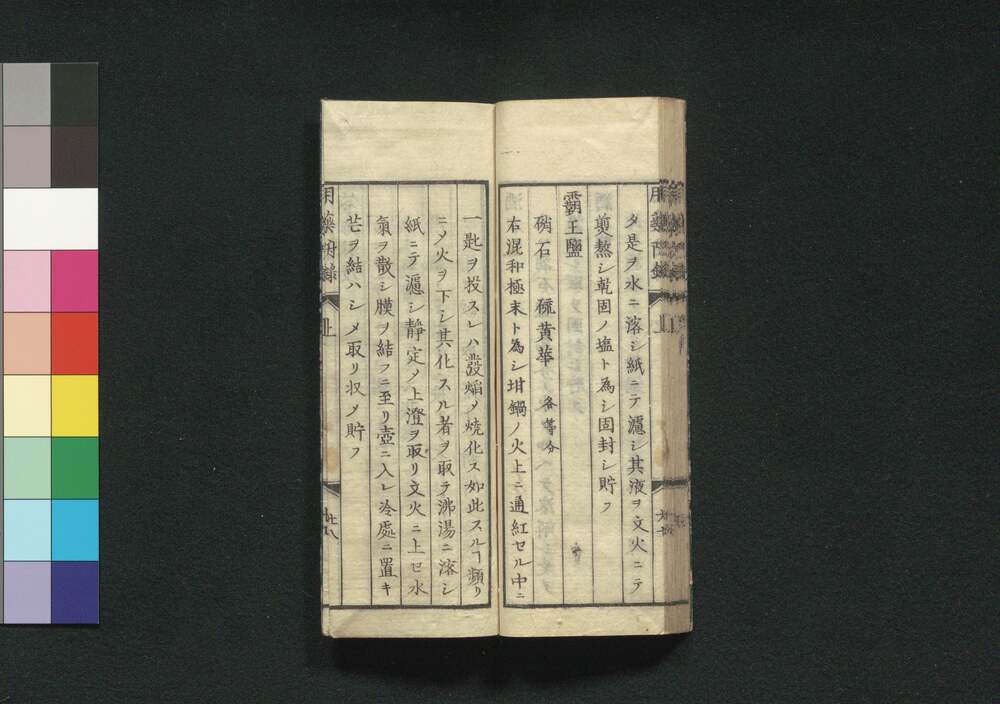 タ是ヲ水ニ溶シ紙ニテ濾シ其液ヲ文火ニテ
煎熬シ乾固ノ塩ト為シ固封シ貯フ
覇王鹽
硝石 硫黄華 各等分
右混和極末ト為シ坩鍋ノ火上ニ通紅セル中ニ
一匙ヲ投スレハ發熖メ焼化ス如此スルヿ頻リ
ニメ火ヲ下シ其化スル者ヲ取テ沸湯ニ溶シ
紙ニテ濾シ静定ノ上澄ヲ取リ文火ニ上セ水
氣ヲ散シ膜ヲ結フニ至リ壺ニ入レ冷處ニ置キ
芒ヲ結ハシメ取リ収メ貯フ
上